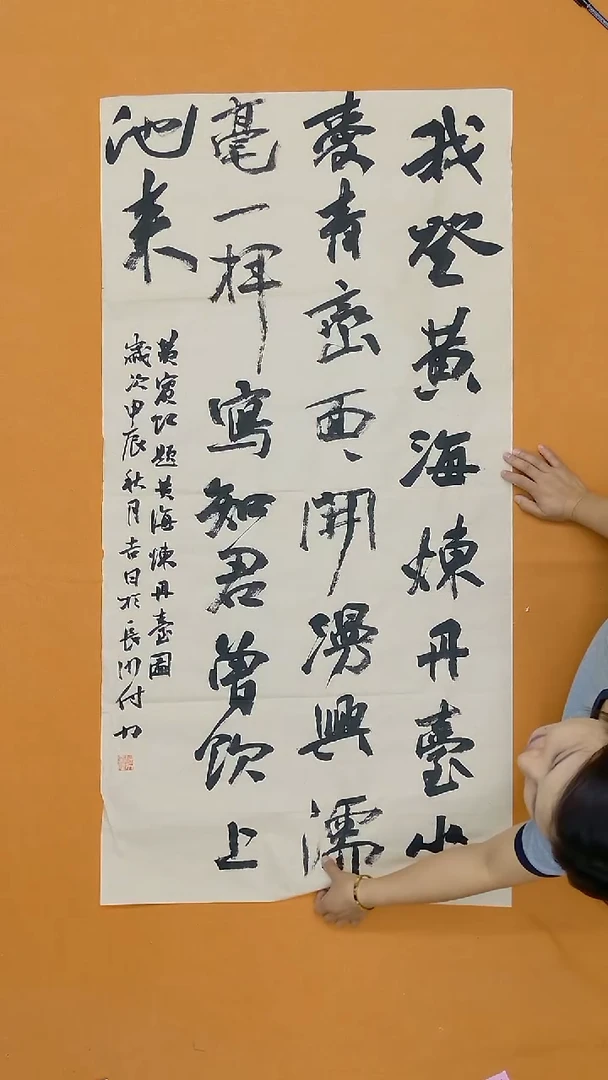 我登黄海煉丹臺
青巒面〻開漫興濡
毫一揮寫知君曾飲上
池来
黄賓虹題黄海煉丹臺圖
歲次甲辰秋月吉日於長沙付